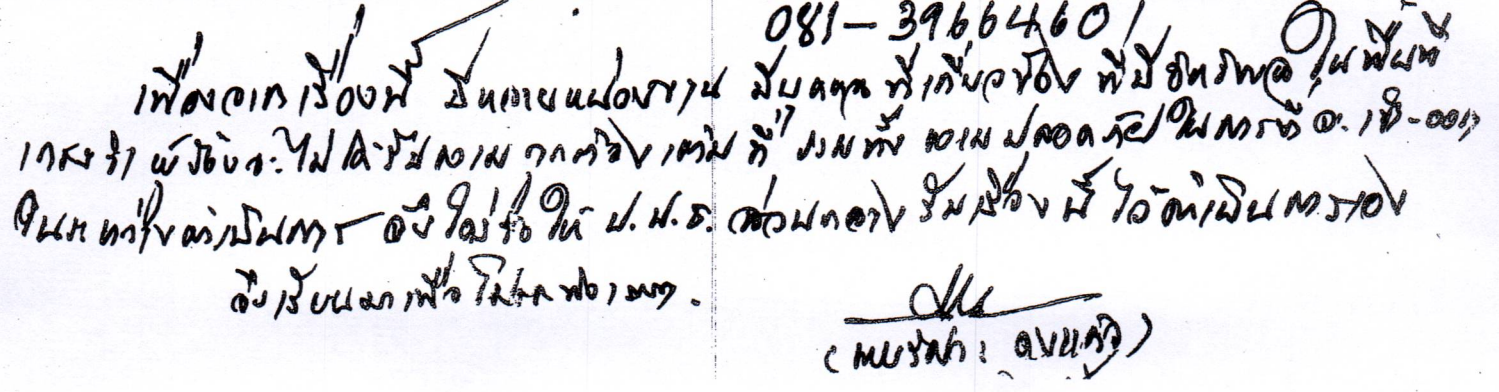 081-39664601
เนื่องจากเรื่องนี้ มีหลายหน่วยงาน มีบุคคลที่เกี่ยวข้อง ที่มีอิทธิพล ในพื้นที่
เกรงว่า ผู้ร้องจะไม่ได้รับความถูกต้อง เต็มที่ รวมทั้ง ความปลอดภัย ในการที่จะ
ในระหว่างดำเนินการ จึงใคร่ขอให้ ป.ป.ช. ส่วนกลาง รับเรื่องนี้ ไว้ดำเนินการเอง
จึงเรียนมาเพื่อโปรดพิจารณา.